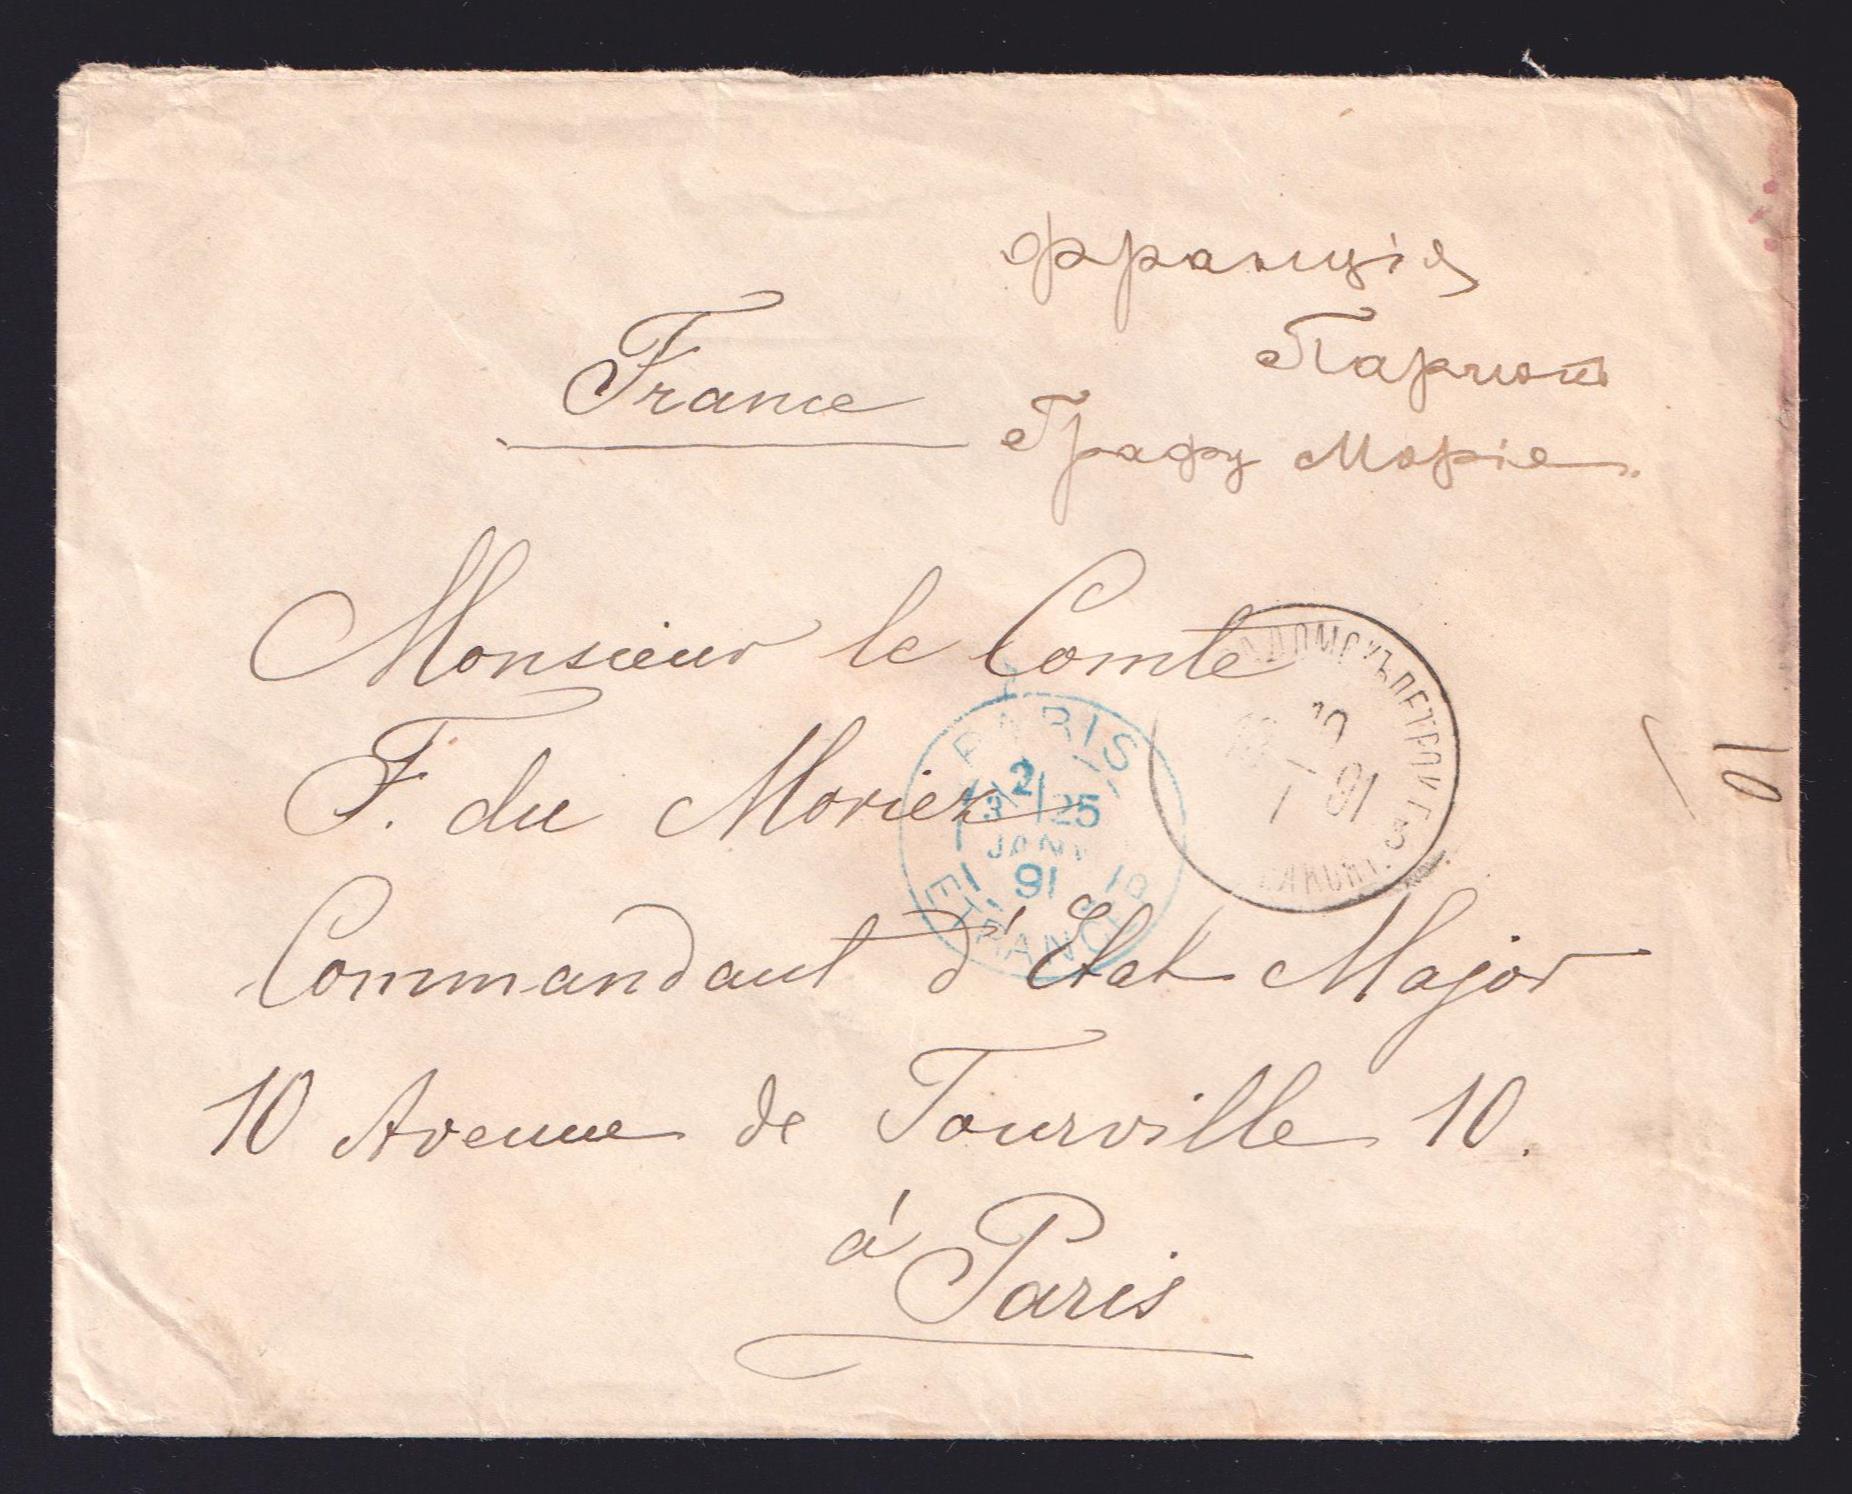 Франція
Парижъ
France
Графу Моріе.
Monsieur le Comte
F. du Moriez
Commandant d'État Major
10 Avenue de Tourville 10.
à Paris
PARIS
2
3 25
JANV
91
ETRANGER
РАДОМСКЪ ПЕТРОК. Г.
10
1 91
3
10